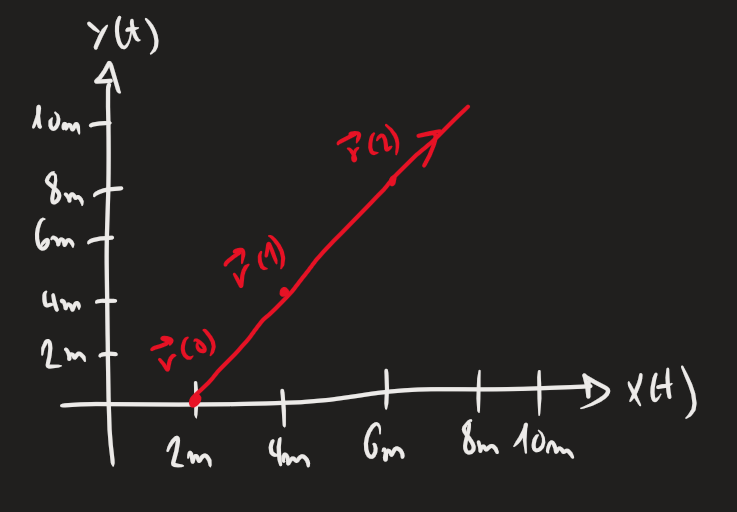 y(t)
10m
8m
6m
4m
2m
r⃗(2)
r⃗(1)
r⃗(0)
2m
4m
6m
8m
10m
x(t)